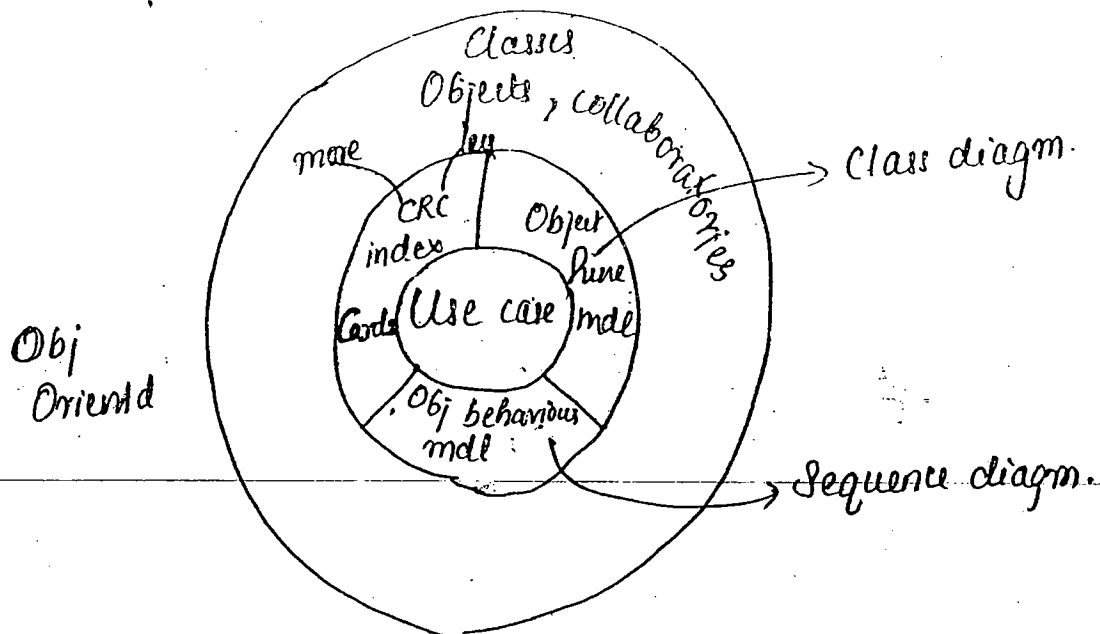 Classes
Objects, collaboratories
more
CRC
index
Cards
Object
mdl
Use case
Obj behaviour
mdl
Class diagm.
Sequence diagm.
Obj
Orientd